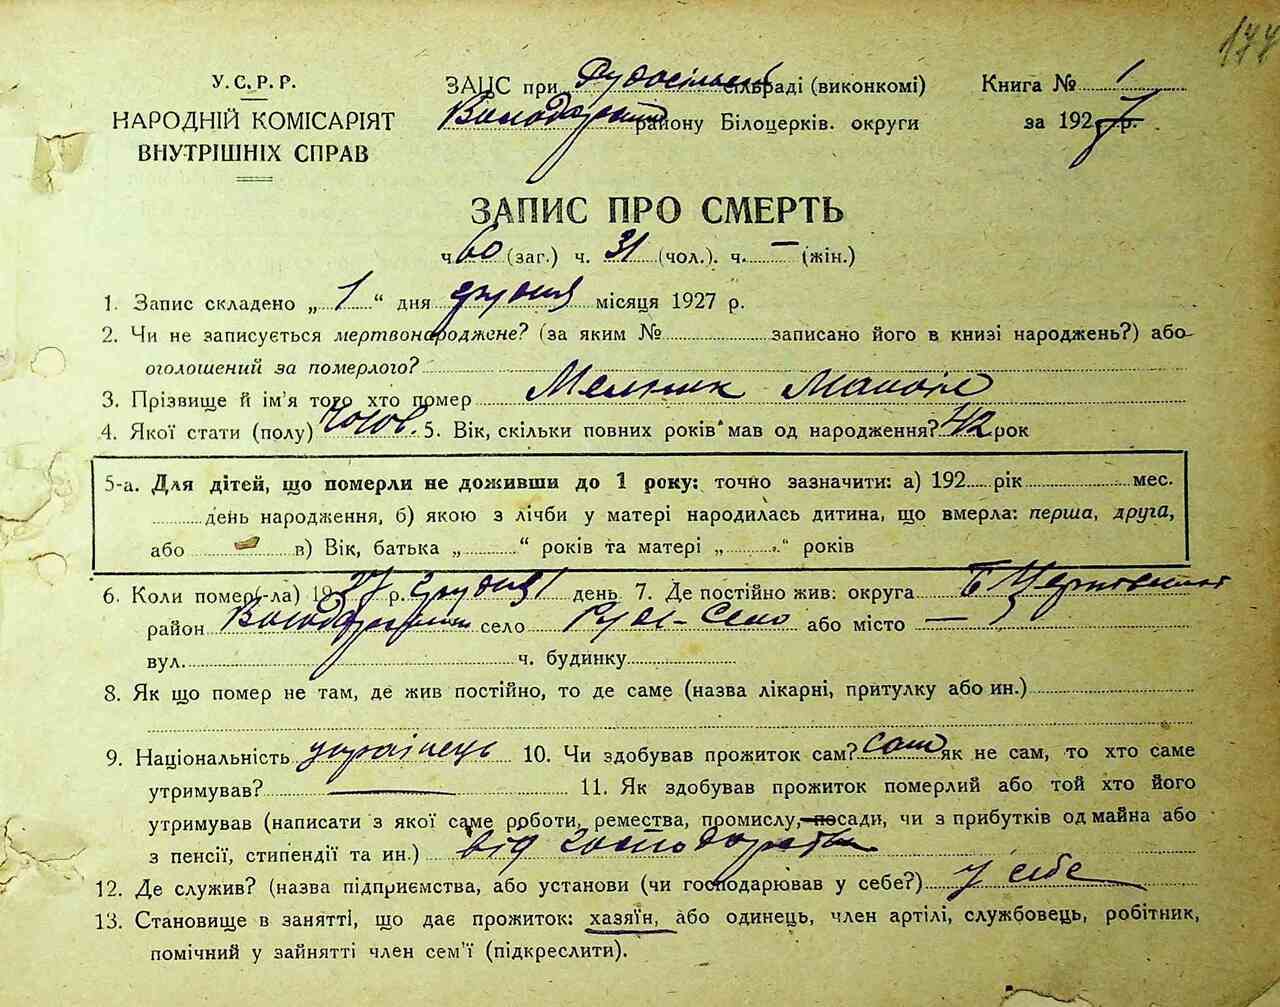 177
У.С.Р.Р.
НАРОДНІЙ КОМІСАРІЯТ
ВНУТРІШНІХ СПРАВ
ЗАЦС при Рудосільській сільраді (виконкомі)
Володарського району Білоцерків. округи
Книга № 1
за 1927 р.
ЗАПИС ПРО СМЕРТЬ
ч. 60 (заг.) ч. 31 (чол.). ч. – (жін.)
1. Запис складено „ 1 “ дня грудня місяця 1927 р.
2. Чи не записується мертвонароджене? (за яким № записано його в книзі народжень?) або
оголошений за померлого?
3. Прізвище й ім'я того хто помер Мельник Мануіл
4. Якої стати (полу) чолов. 5. Вік, скільки повних років мав од народження? 42 рок
5-а. Для дітей, що померли не доживши до 1 року: точно зазначити: а) 192 рік мес.
день народження, б) якою з лічби у матері народилась дитина, що вмерла: перша, друга,
або в) Вік, батька „ “ років та матері „ “ років
6. Коли помер(-ла) 1927 р. грудня 1 день 7. Де постійно жив: округа Б Церковська
район Володарський село Руде-Село або місто –
вул. ч. будинку
8. Як що помер не там, де жив постійно, то де саме (назва лікарні, притулку або ин.)
9. Національність українець 10. Чи здобував прожиток сам? сам як не сам, то хто саме
утримував? — 11. Як здобував прожиток померлий або той хто його
утримував (написати з якої саме роботи, ремества, промислу, посади, чи з прибутків од майна або
з пенсії, стипендії та ин.) від господарства
12. Де служив? (назва підприємства, або установи (чи господарював у себе?) у себе
13. Становище в занятті, що дає прожиток: хазяїн, або одинець, член артілі, службовець, робітник,
помічний у зайнятті член сем'ї (підкреслити).